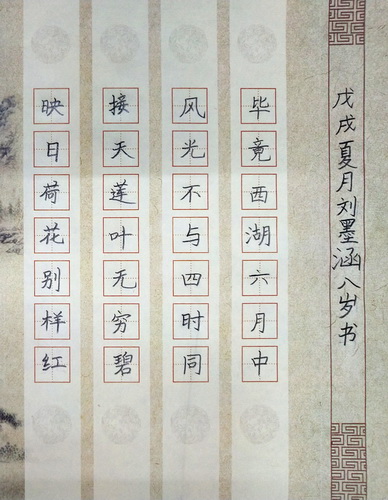 戊戌夏月刘墨涵八岁书
毕竟西湖六月中
风光不与四时同
接天莲叶无穷碧
映日荷花别样红